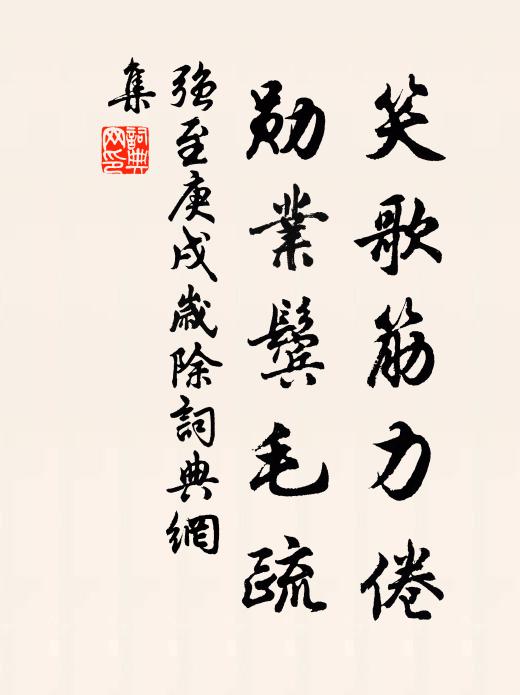 笑歌筋力倦
勋業鬓毛疏
强至庚戌歲除詞典網
集
詞典
网印